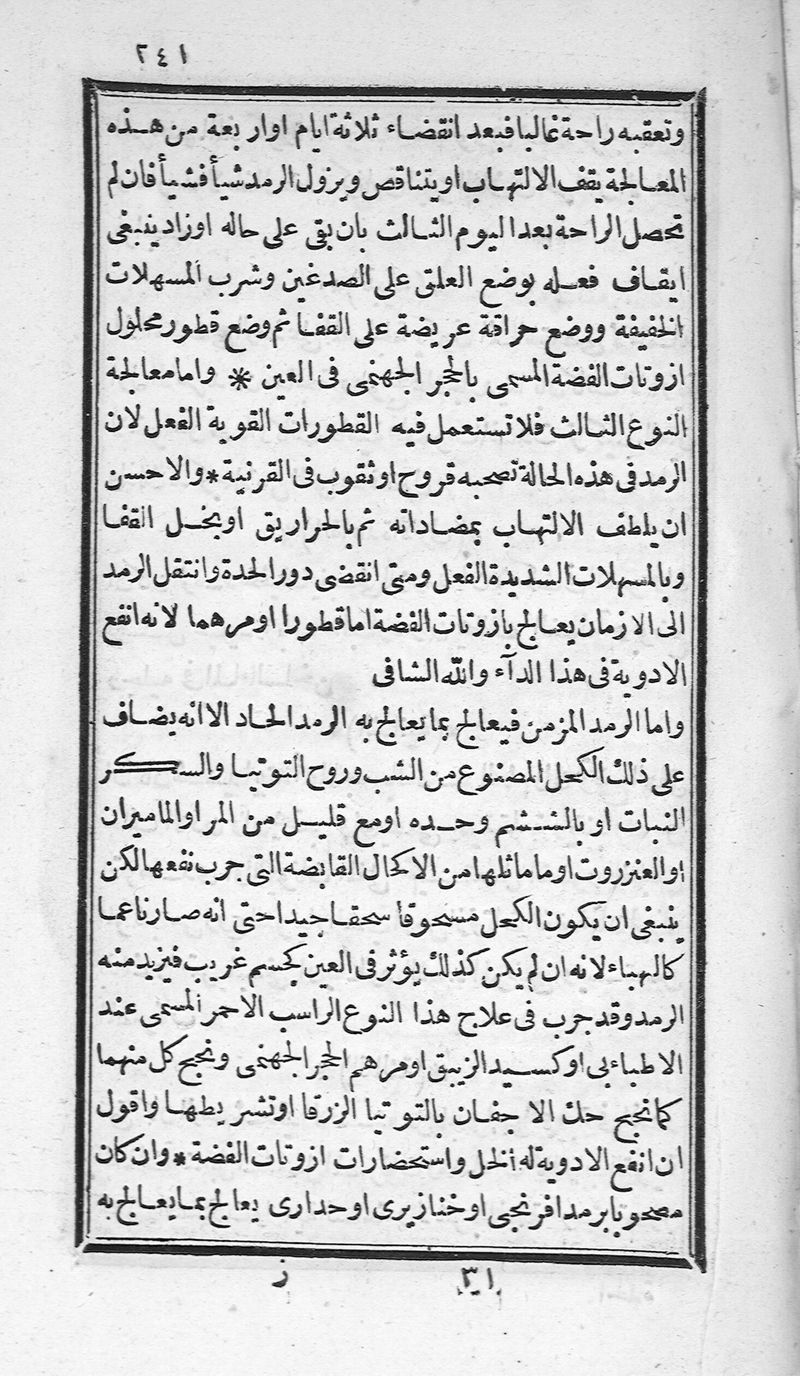 ٢٤١
وتعقبه راحة غالبا فبعد انقضاء ثلاثة ايام او اربعة من هذه
المعالجة يقف الالتهاب او يتناقص ويزول الرمد شيأ فشيأ فان لم
تحصل الراحة بعد اليوم الثالث بان بقى على حاله او زاد ينبغى
ايقاف فعله بوضع العلق على الصدغين وشرب المسهلات
الخفيفة ووضع حراقة عريضة على القفا ثم وضع قطور محلول
ازوتات الفضة المسمى بالحجر الجهنمى فى العين * واما معالجة
النوع الثالث فلا تستعمل فيه القطورات القوية الفعل لان
الرمد فى هذه الحالة تصحبه قروح او ثقوب فى القرنية * والاحسن
ان يلطف الالتهاب بمضاداته ثم بالحراريق او بخل القفا
وبالمسهلات الشديدة الفعل ومتى انقضى دور الحدة وانتقل الرمد
الى الازمان يعالج بازوتات الفضة اما قطورا او مرهما لانه انفع
الادوية فى هذا الدآء والله الشافى
واما الرمد المزمن فيعالج بما يعالج به الرمد الحاد الا انه يضاف
على ذلك الكحل المصنوع من الشب وروح التوتيا والسكر
النبات او بالششم وحده او مع قليل من المر او الماميران
او العنزروت او ما ماثلها من الاكحال القابضة التى جرب نفعها لكن
ينبغى ان يكون الكحل مسحوقا سحقا جيدا حتى انه صار ناعما
كالهباء لانه ان لم يكن كذلك يؤثر فى العين كجسم غريب فيزيد منه
الرمد وقد جرب فى علاج هذا النوع الراسب الاحمر المسمى عند
الاطباء بى اوكسيد الزيبق او مرهم الحجر الجهنمى ونجح كل منهما
كما نجح حك الاجفان بالتوتيا الزرقا او تشريطها واقول
ان انفع الادوية له الخل واستحضارات ازوتات الفضة * وان كان
مصحوبا برمد افرنجى او خنازيرى او حدارى يعالج بما يعالج به
٣١ ز